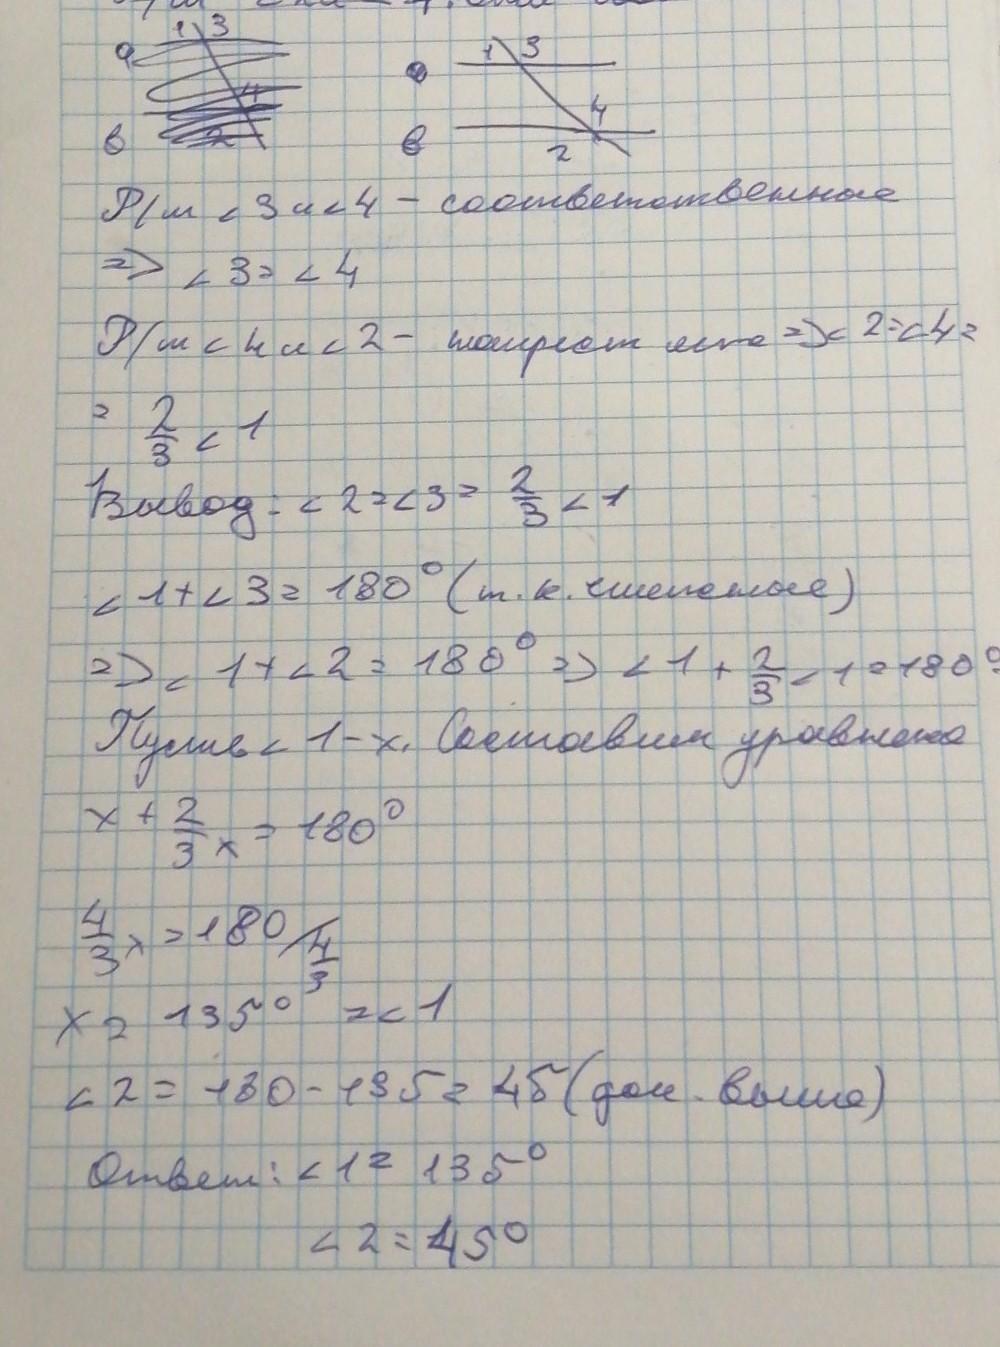 1 3
a
4
в
2
1 3
4
в
2
Р/м <3 и <4 - соответственные
=> <3 = <4
Р/м <4 и <2 - => <2=<4=
= 2/3 <1
Вывод: <2=<3= 2/3 <1
<1+<3= 180° (т.к. смежные)
=> <1+<2= 180° => <1 + 2/3 <1=180°
Пусть <1-x. Составим уравнение
x + 2/3 x = 180°
4/3 x = 180 / 4/3
x = 135° = <1
<2 = 180 - 135 = 45 (док. выше)
Ответ: <1= 135°
<2 = 45°